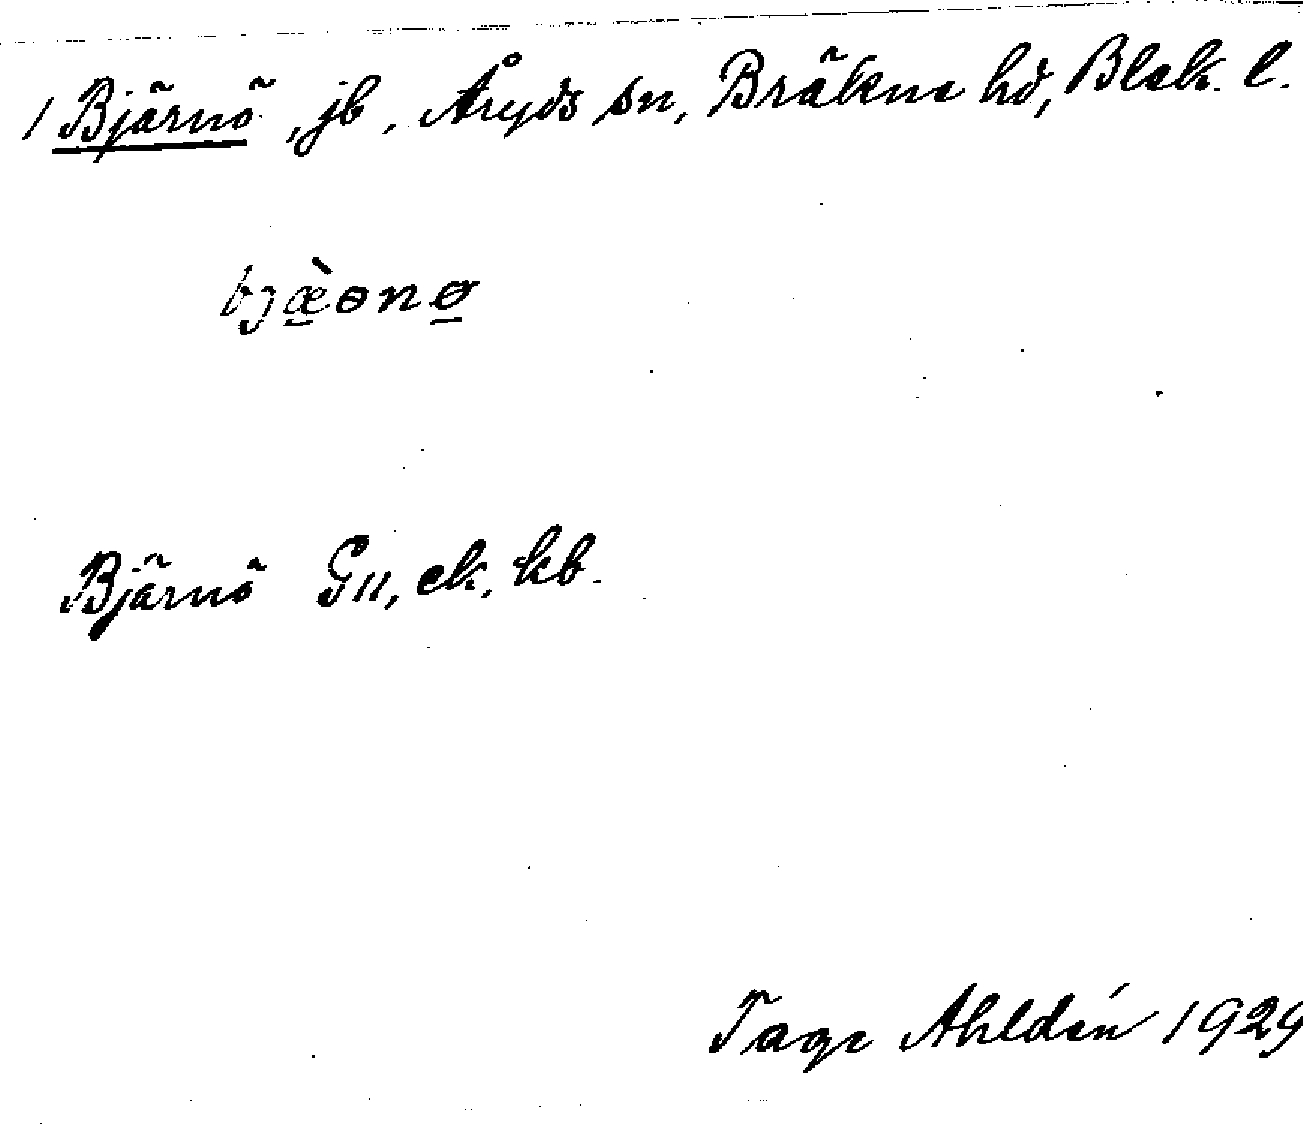 1 Bjärnö, jb, Åryds sn, Bräkne hd, Blek. l.
bjæ̱̀ɵnø̱
Bjärnö G11, ek, kb.
Tage Ahldén 1929